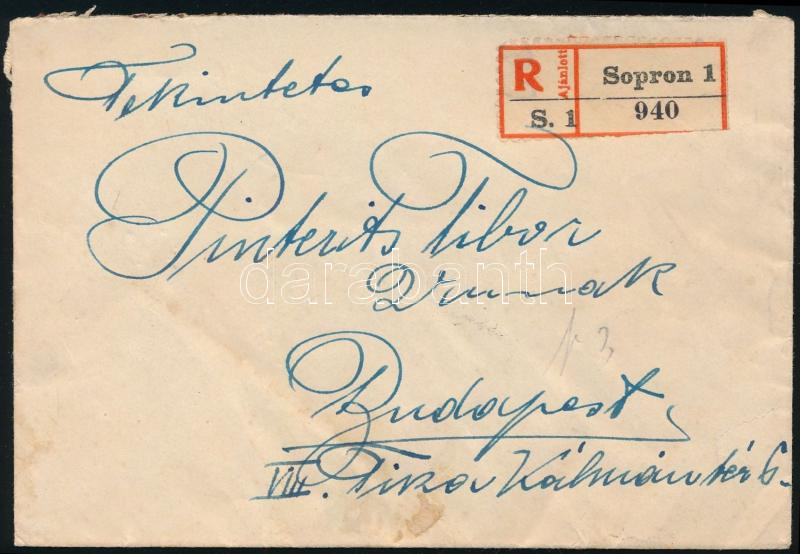 R Ajánlott Sopron 1
S. 1 940
Tekintetes
Pinterits Tibor
Urnak
darabanth
Budapest,
VIII. Tisza Kálmán tér 6.